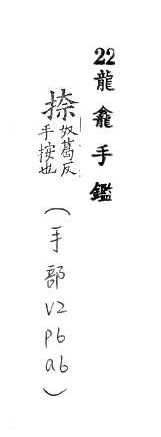 22龍龕手鑑
捺奴葛反手按也(手部V2P6a6)